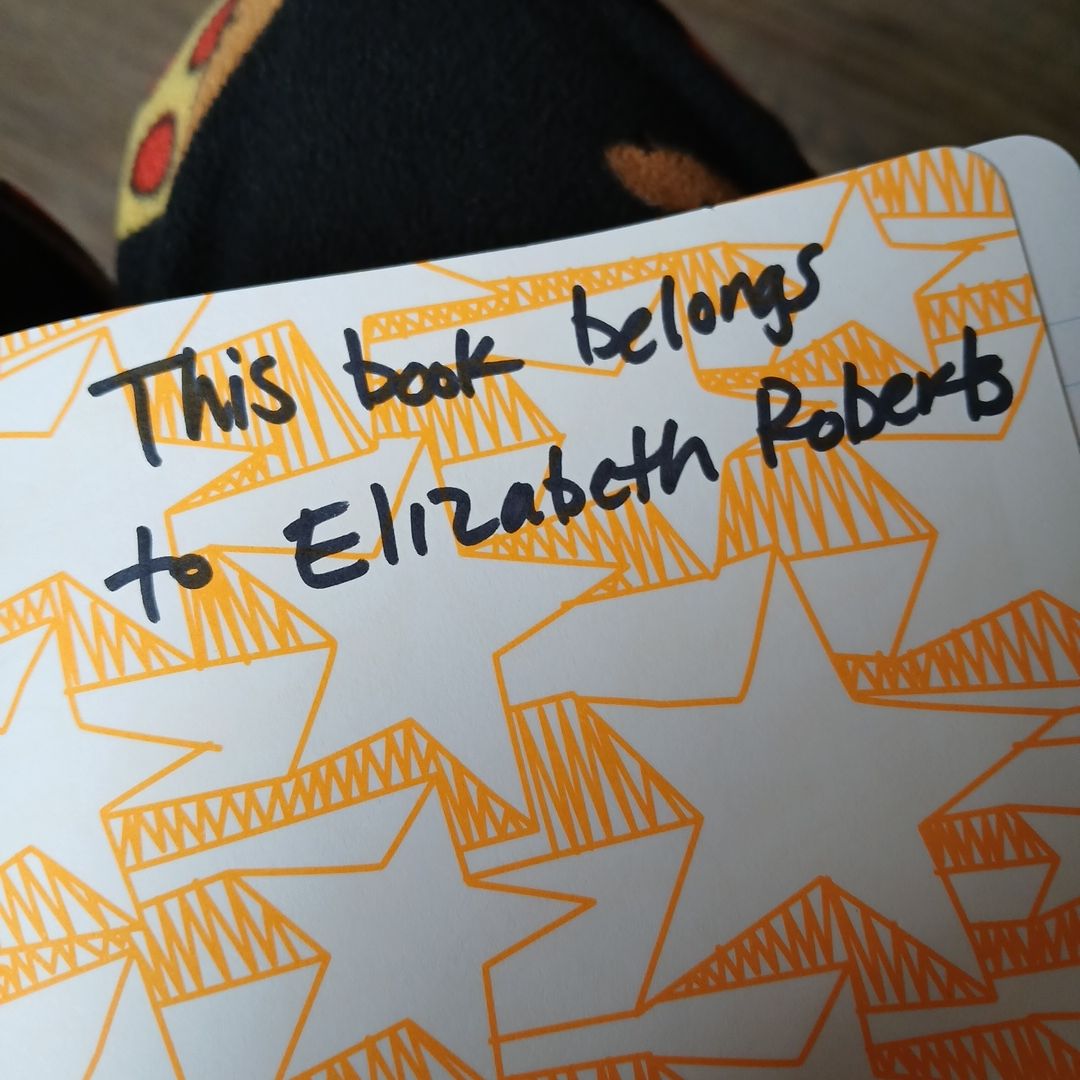 This book belongs
to Elizabeth Roberts